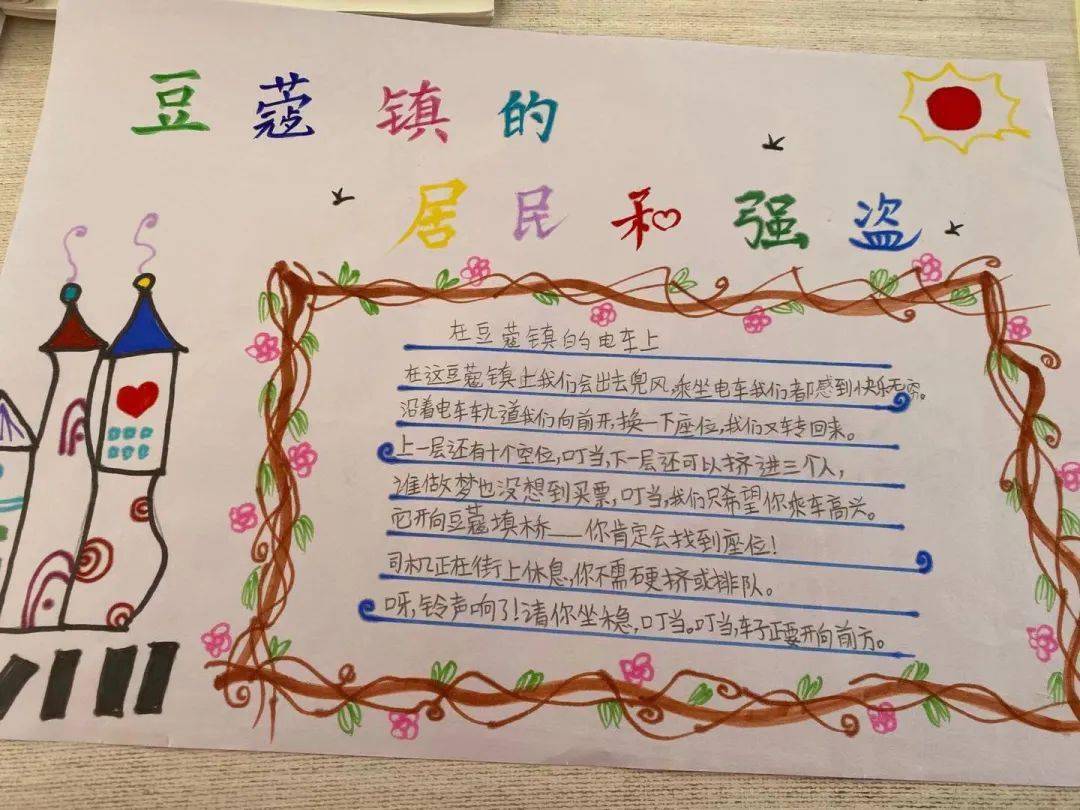 豆蔻镇的
居民和强盗
在豆蔻镇的电车上
在这豆蔻镇上我们会出去兜风,乘坐电车我们都感到快乐无穷。
沿着电车轨道我们向前开,换一下座位,我们又转回来。
上一层还有十个空位,叮当,下一层还可以挤进三个人,
谁做梦也没想到买票,叮当,我们只希望你乘车高兴。
它开向豆蔻填桥——你肯定会找到座位!
司机正在街上休息,你不需硬挤或排队。
呀,铃声响了!请你坐稳,叮当。叮当,车子正要开向前方。